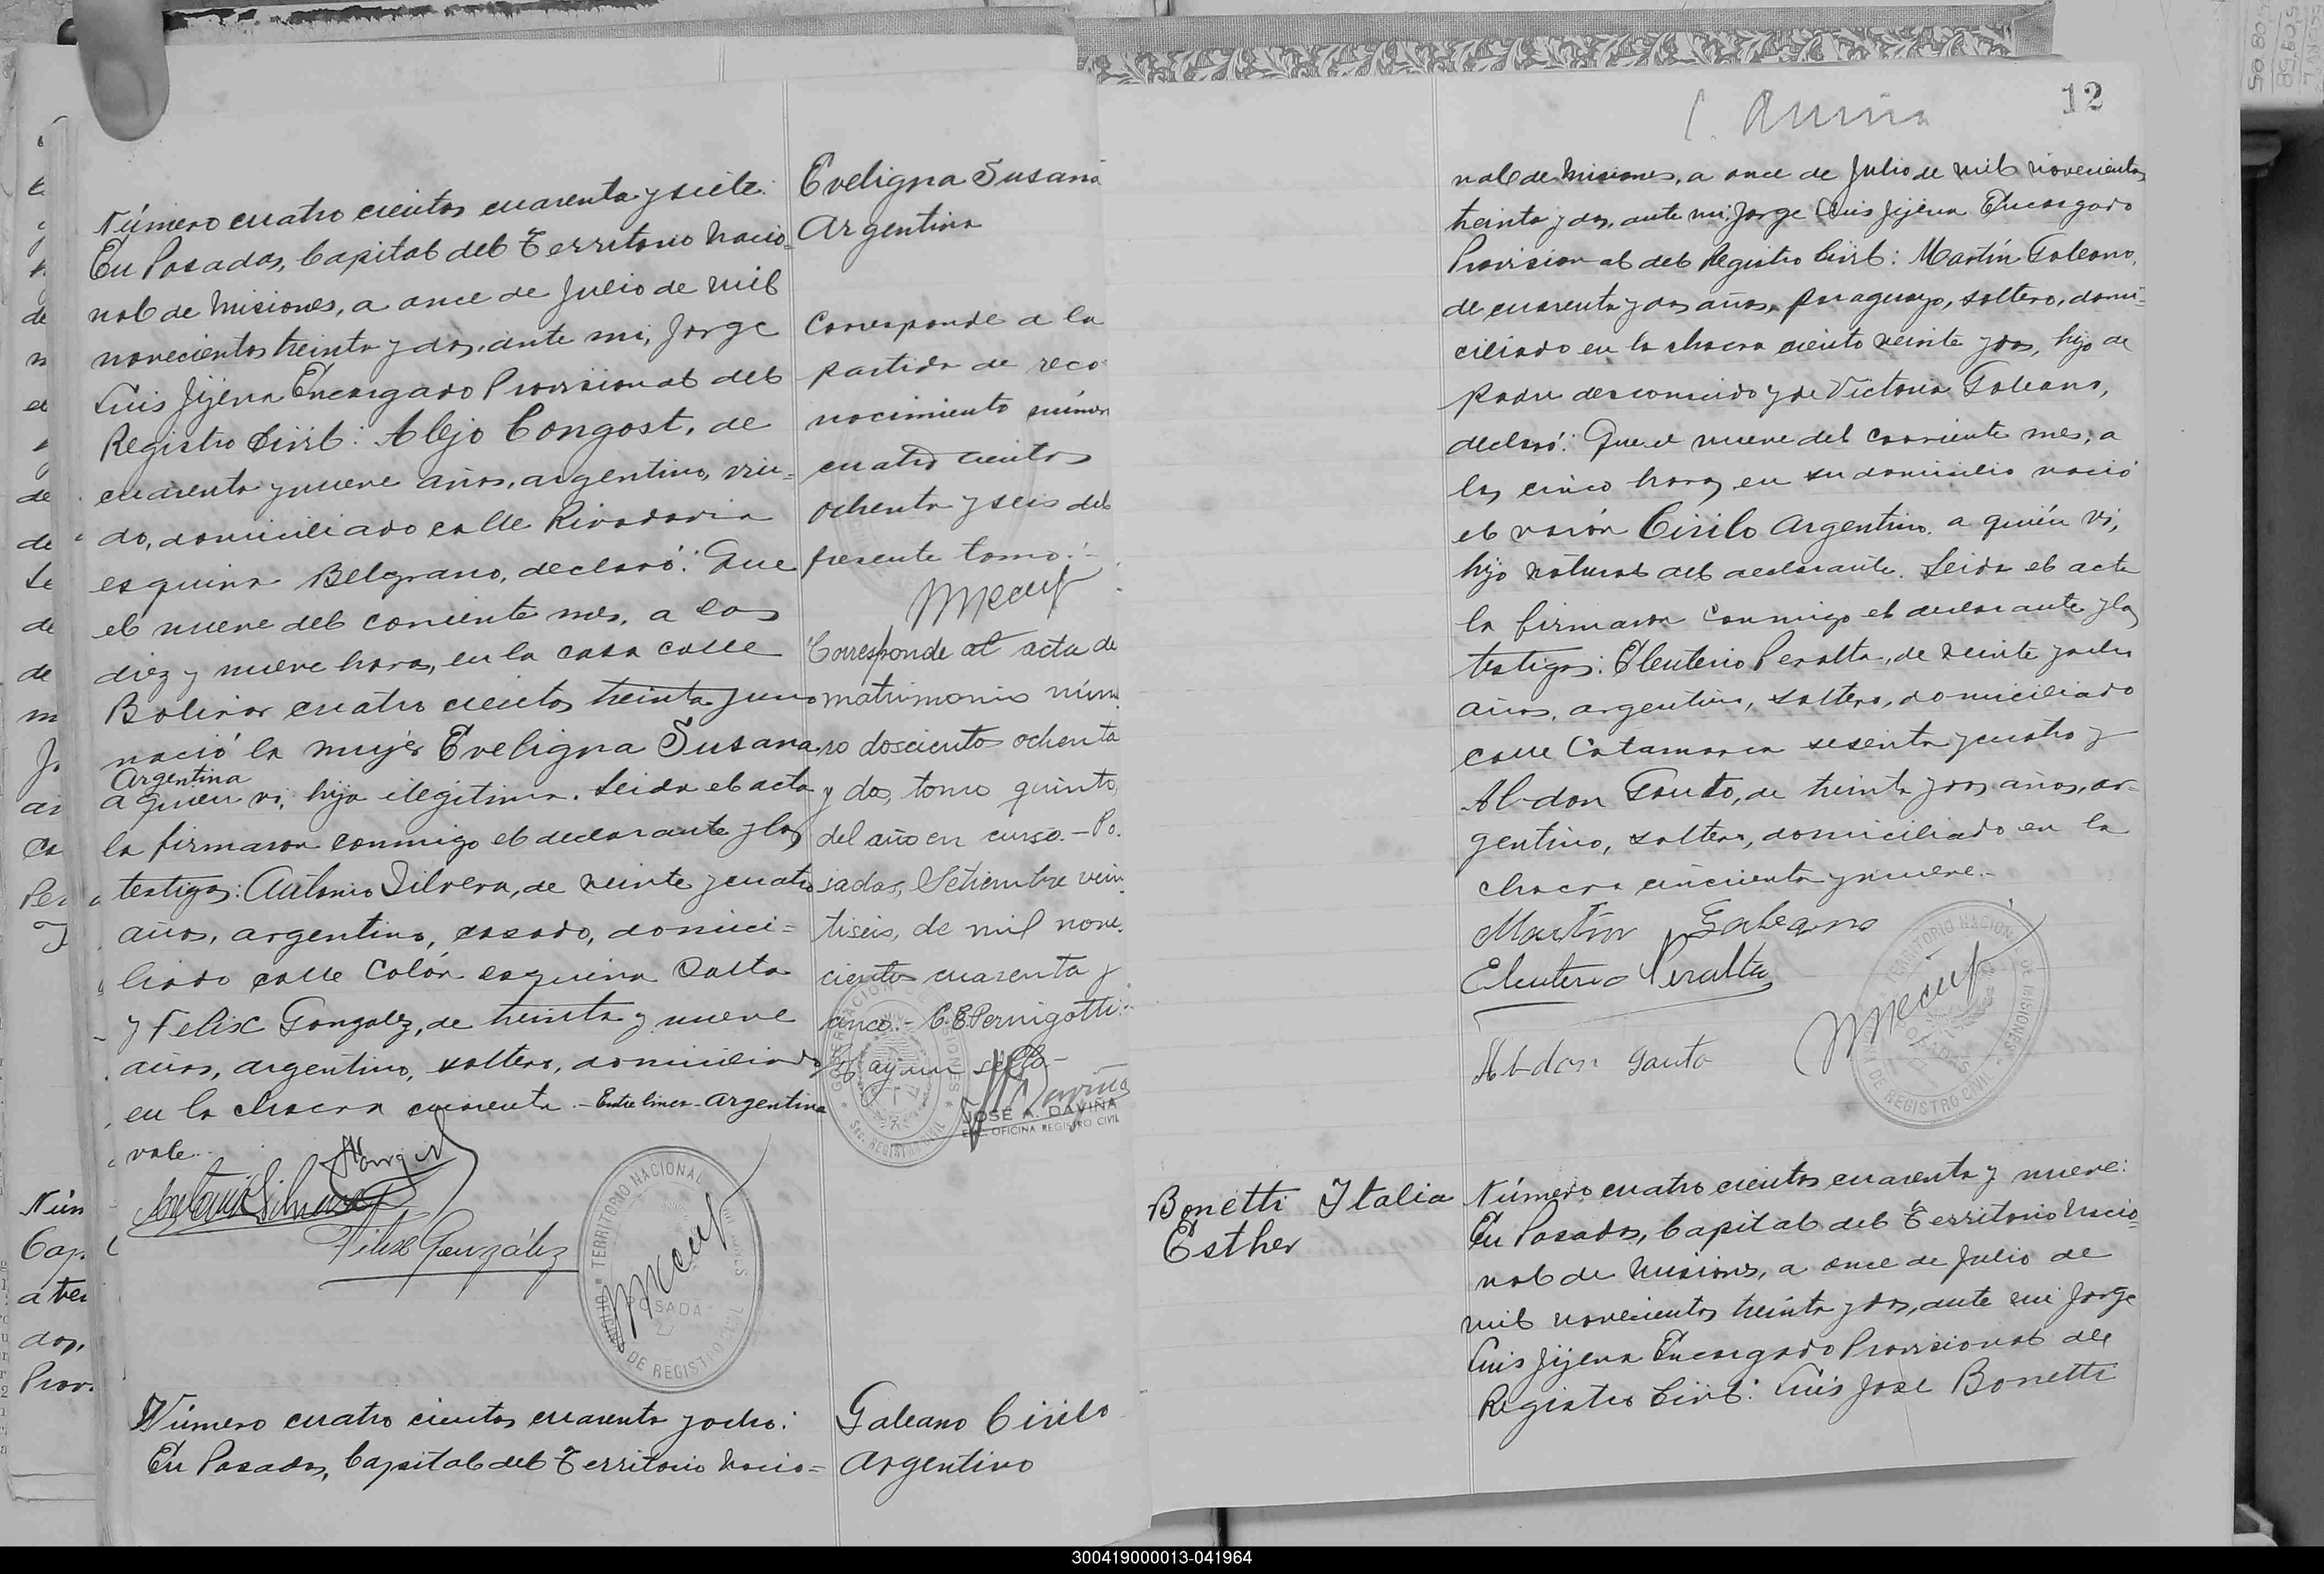 Número cuatro cientos cuarenta y siete:
En Posadas, Capital del Territorio Nacio=
nal de Misiones, a once de Julio de mil
novecientos treinta y dos, ante mi, Jorge
Luis Jijena Encargado Provisional del
Registro Civil: Alejo Congost, de
cuarenta y nueve años, argentino, viu=
do, domiciliado calle Rivadavia
esquina Belgrano, declaró: Que
el nueve del corriente mes, a las
diez y nueve horas, en la casa calle
Bolivar cuatro cientos treinta y uno
nació la mujer Eveligna Susana
Argentina
a quien vi, hija ilegitima. Leida el acta
la firmaron conmigo el declarante y los
testigos: Antonio Silvera, de veinte y cuatro
años, argentino, casado, domici=
liado calle Colón esquina Salta
y Felix Gonzalez, de treinta y nueve
años, argentino, soltero, domiciliado
en la chacra cuarenta.- Entre linea-Argentina
vale.-
Antonio Silvera
Felix González
TERRITORIO NACIONAL
DE REGISTRO CIVIL
POSADA
Número cuatro cientos cuarenta y ocho:
En Posadas, Capital del Territorio Nacio=
Eveligna Susana
Argentina
Corresponde a la
partida de reco
nocimiento númer
cuatro cientos
ochenta y seis del
presente tomo.-
Corresponde al acta de
matrimonio núme
ro doscientos ochenta
y dos, tomo quinto,
del año en curso.- Po.
sadas, Setiembre vein
tiseis, de mil nove.
cientos cuarenta y
cinco.- C.E.Pernigotti.-
Hay un sello-
JOSE A. DAVIÑA
ENC. OFICINA REGISTRO CIVIL
Galeano Cirilo
Argentino
12
nal de Misiones, a once de Julio de mil novecientos
treinta y dos, ante mi, Jorge Luis Jijena Encargado
Provisional del Registro Civil: Martín Galeano,
de cuarenta y dos años, paraguayo, soltero, domi=
ciliado en la chacra ciento veinte y dos, hijo de
padre desconocido y de Victoria Galeano,
declaró: Que el nueve del corriente mes, a
las cinco horas, en su domicilio nació
el varón Cirilo Argentino, a quién vi,
hijo natural del declarante. Leida el acta
la firmaron conmigo el declarante y los
testigos: Eleuterio Peralta, de veinte y ocho
años, argentino, soltero, domiciliado
calle Catamarca sesenta y cuatro y
Abdon Gauto, de treinta y dos años, ar=
gentino, soltero, domiciliado en la
chacra cincuenta y nueve.-
Martin Galeano
Eleuterio Peralta
Abdon Gauto
TERRITORIO NACIONAL DE MISIONES
DE REGISTRO CIVIL
POSADAS
Bonetti Italia
Esther
Número cuatro cientos cuarenta y nueve:
En Posadas, Capital del Territorio Nacio=
nal de Misiones, a once de Julio de
mil novecientos treinta y dos, ante mi Jorge
Luis Jijena Encargado Provisional del
Registro Civil: Luis José Bonetti
300419000013-041964